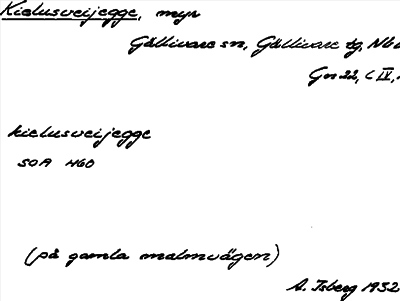 Kielusveijegge, myr
Gällivare sn, Gällivare tg, Nbl
Gn 22, C IV,
kielusveijegge
SOA 460
(på gamla malmvägen)
A. Isberg 1932